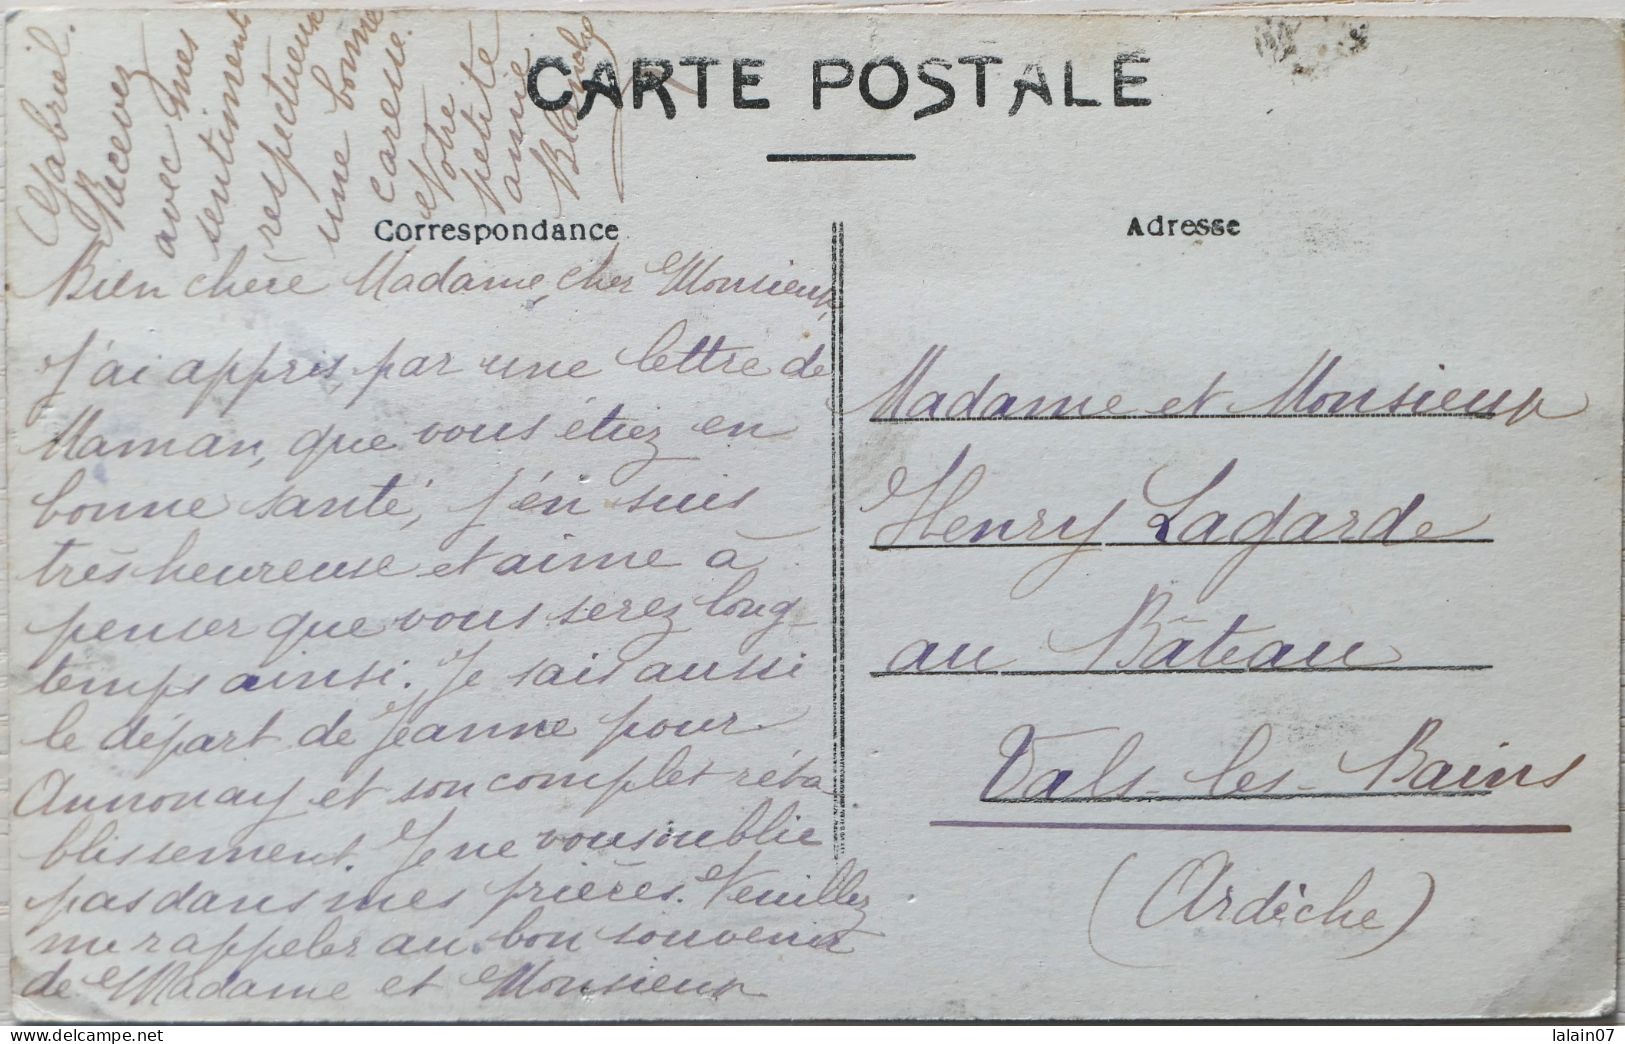 CARTE POSTALE
Correspondance
Adresse
Bien chère Madame, cher Monsieur,
J'ai appris, par une lettre de
Maman, que vous étiez en
bonne santé, j'en suis
très heureuse et aime à
penser que vous serez long-
temps ainsi. Je sais aussi
le départ de Jeanne pour
Annonay et son complet réta
blissement. Je ne vous oublie
pas dans mes prières. Veuillez
me rappeler au bon souvenir
de Madame et Monsieur
Gabriel.
Recevez
avec mes
sentiments
respectueux
une bonne
caresse.
Votre
petite
amie
Madame et Monsieur
Henry Lagarde
au Bâteau
Vals-les-Bains
(Ardèche)
lalain07